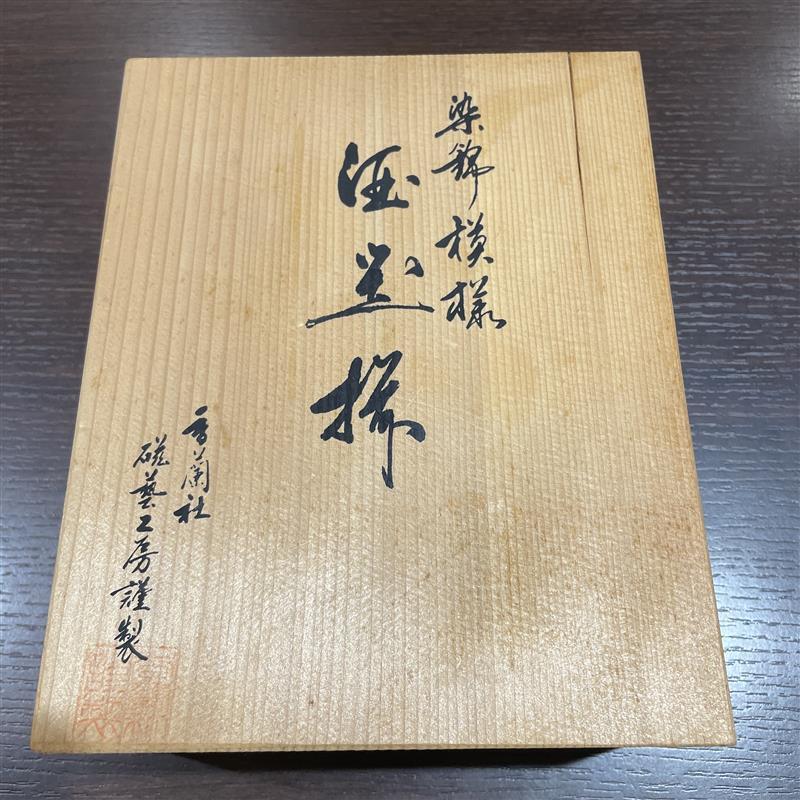 染錦模様
酒器揃
香蘭社
磁藝工房謹製